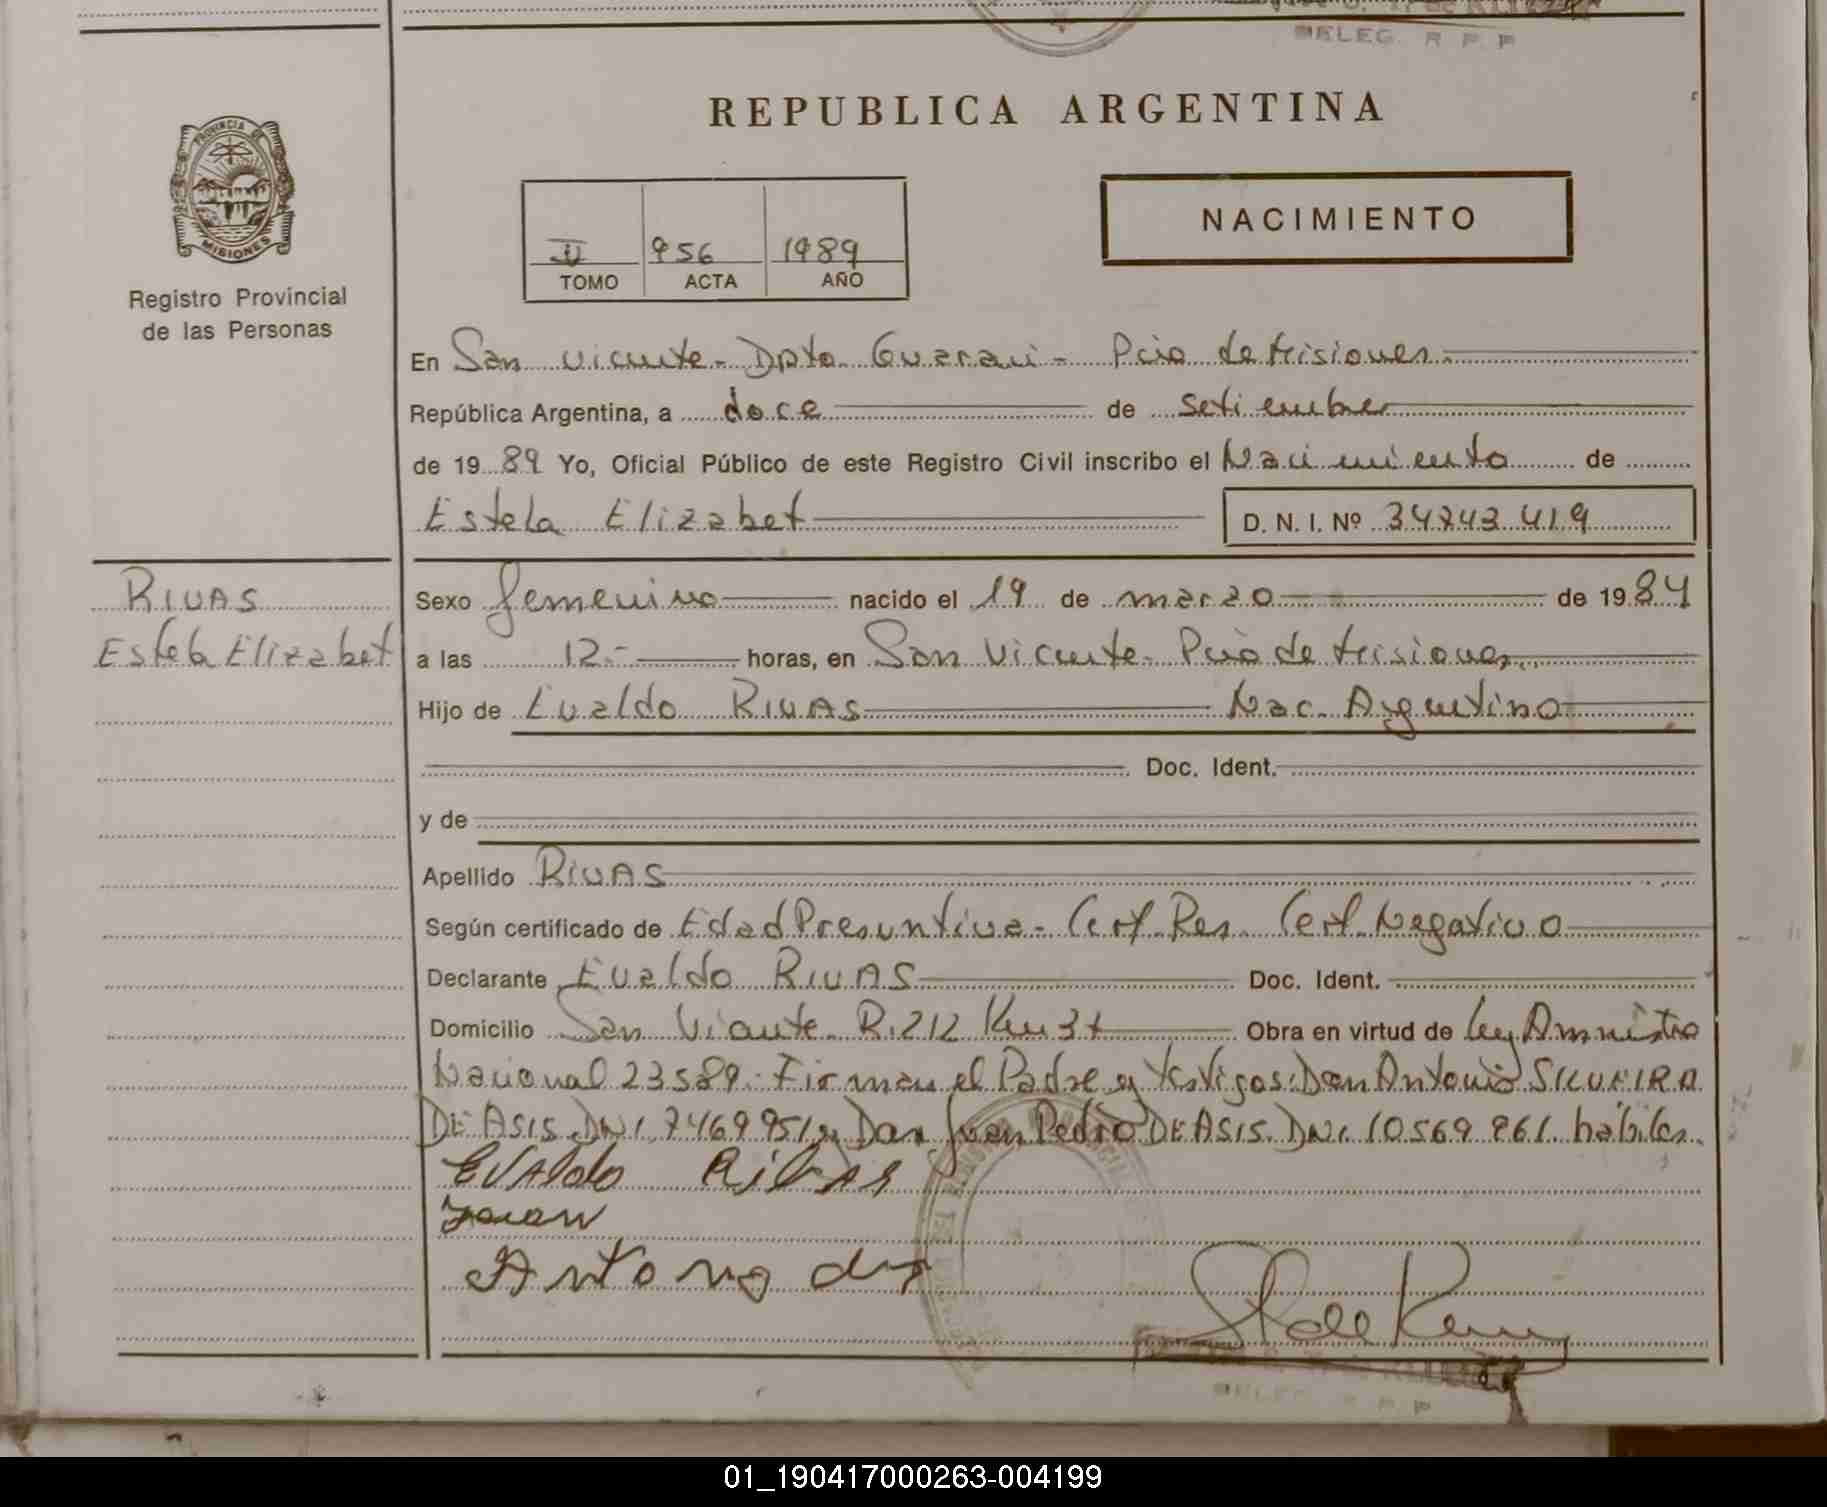 DELEG. R P P
REPUBLICA ARGENTINA
PROVINCIA DE
MISIONES
Registro Provincial
de las Personas
NACIMIENTO
II 956 1989
TOMO ACTA AÑO
En San Vicente - Dpto. Guarani - Pcia de Misiones.
República Argentina, a doce de setiembre
de 1989 Yo, Oficial Público de este Registro Civil inscribo el Nacimiento de
Estela Elizabet D. N. I. Nº 34243419
RIVAS
Estela Elizabet
Sexo femenino nacido el 19 de marzo de 1984
a las 12.- horas, en San Vicente. Pcia de Misiones.
Hijo de Evaldo RIVAS Nac. Argentino
Doc. Ident.
y de
Apellido RIVAS
Según certificado de Edad Presuntiva - Cert. Res. Cert. Negativo
Declarante Evaldo RIVAS Doc. Ident.
Domicilio San Vicente R. 212 Km 37 Obra en virtud de Ley Amnistia
Nacional 23589. Firman el Padre y testigos: Don Antonio SILVEIRA
DE ASIS. DNI. 7469951 y Don Juan Pedro DE ASIS. DNI. 10569861. hábiles.
EVAldo RiBAS
Antonio
DELEG. R P P
01_190417000263-004199